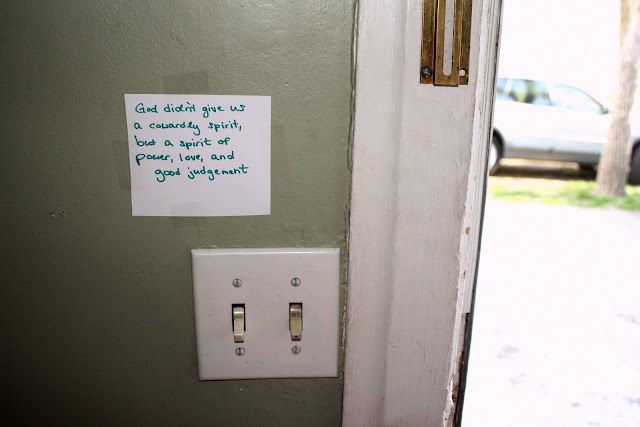 God didn't give us
a cowardly spirit,
but a spirit of
power, love, and
good judgement